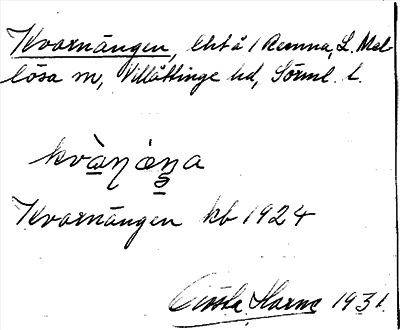 Kvarnängen, lht å 1 Remna, L. Mel-
lösa sn, Villåttinge hd, Sörml. l.
kvàŋäŋa
Kvarnängen kb 1924
Harne 1931.